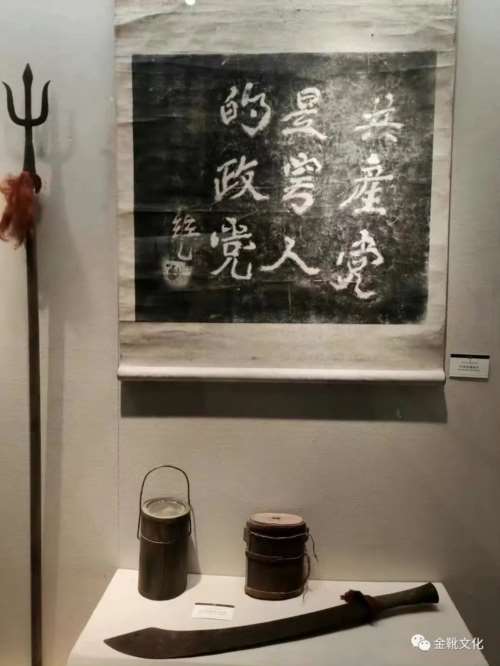 共産党
是穷人
的政党
金靴文化